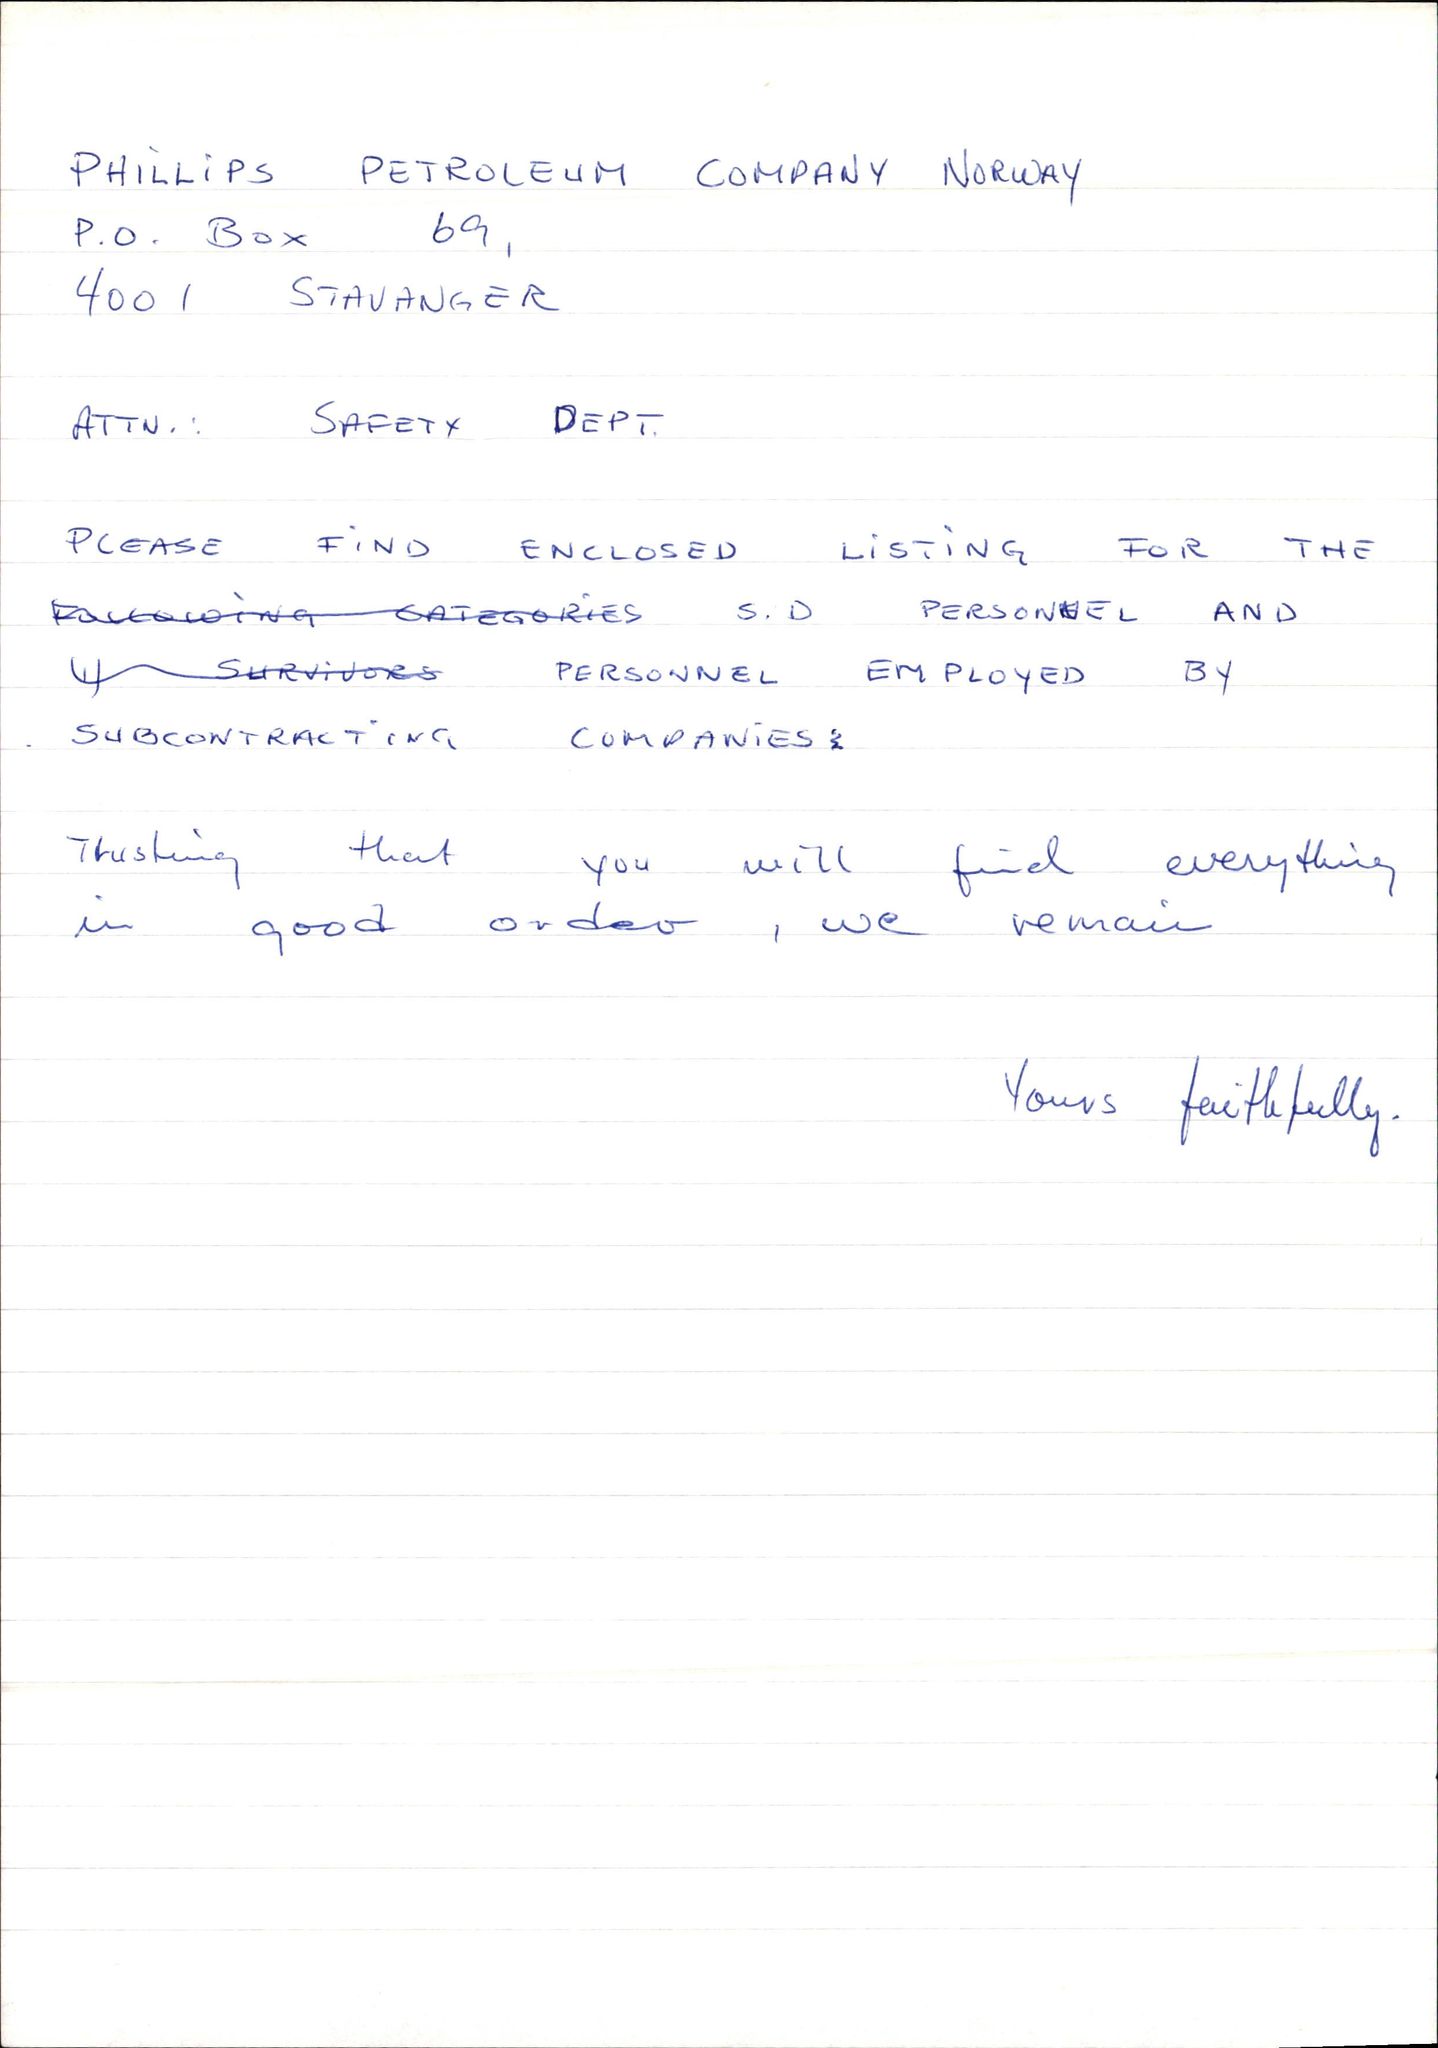 PHILLIPS PETROLEUM COMPANY NORWAY
P.O. BOX 69,
4001 STAVANGER
ATTN.: SAFETY DEPT.
PLEASE FIND ENCLOSED LISTING FOR THE
FOLLOWING CATEGORIES S.D PERSONNEL AND
SURVIVORS PERSONNEL EMPLOYED BY
SUBCONTRACTING COMPANIES:
Trusting that you will find everything
in good order, we remain
Yours faithfully.